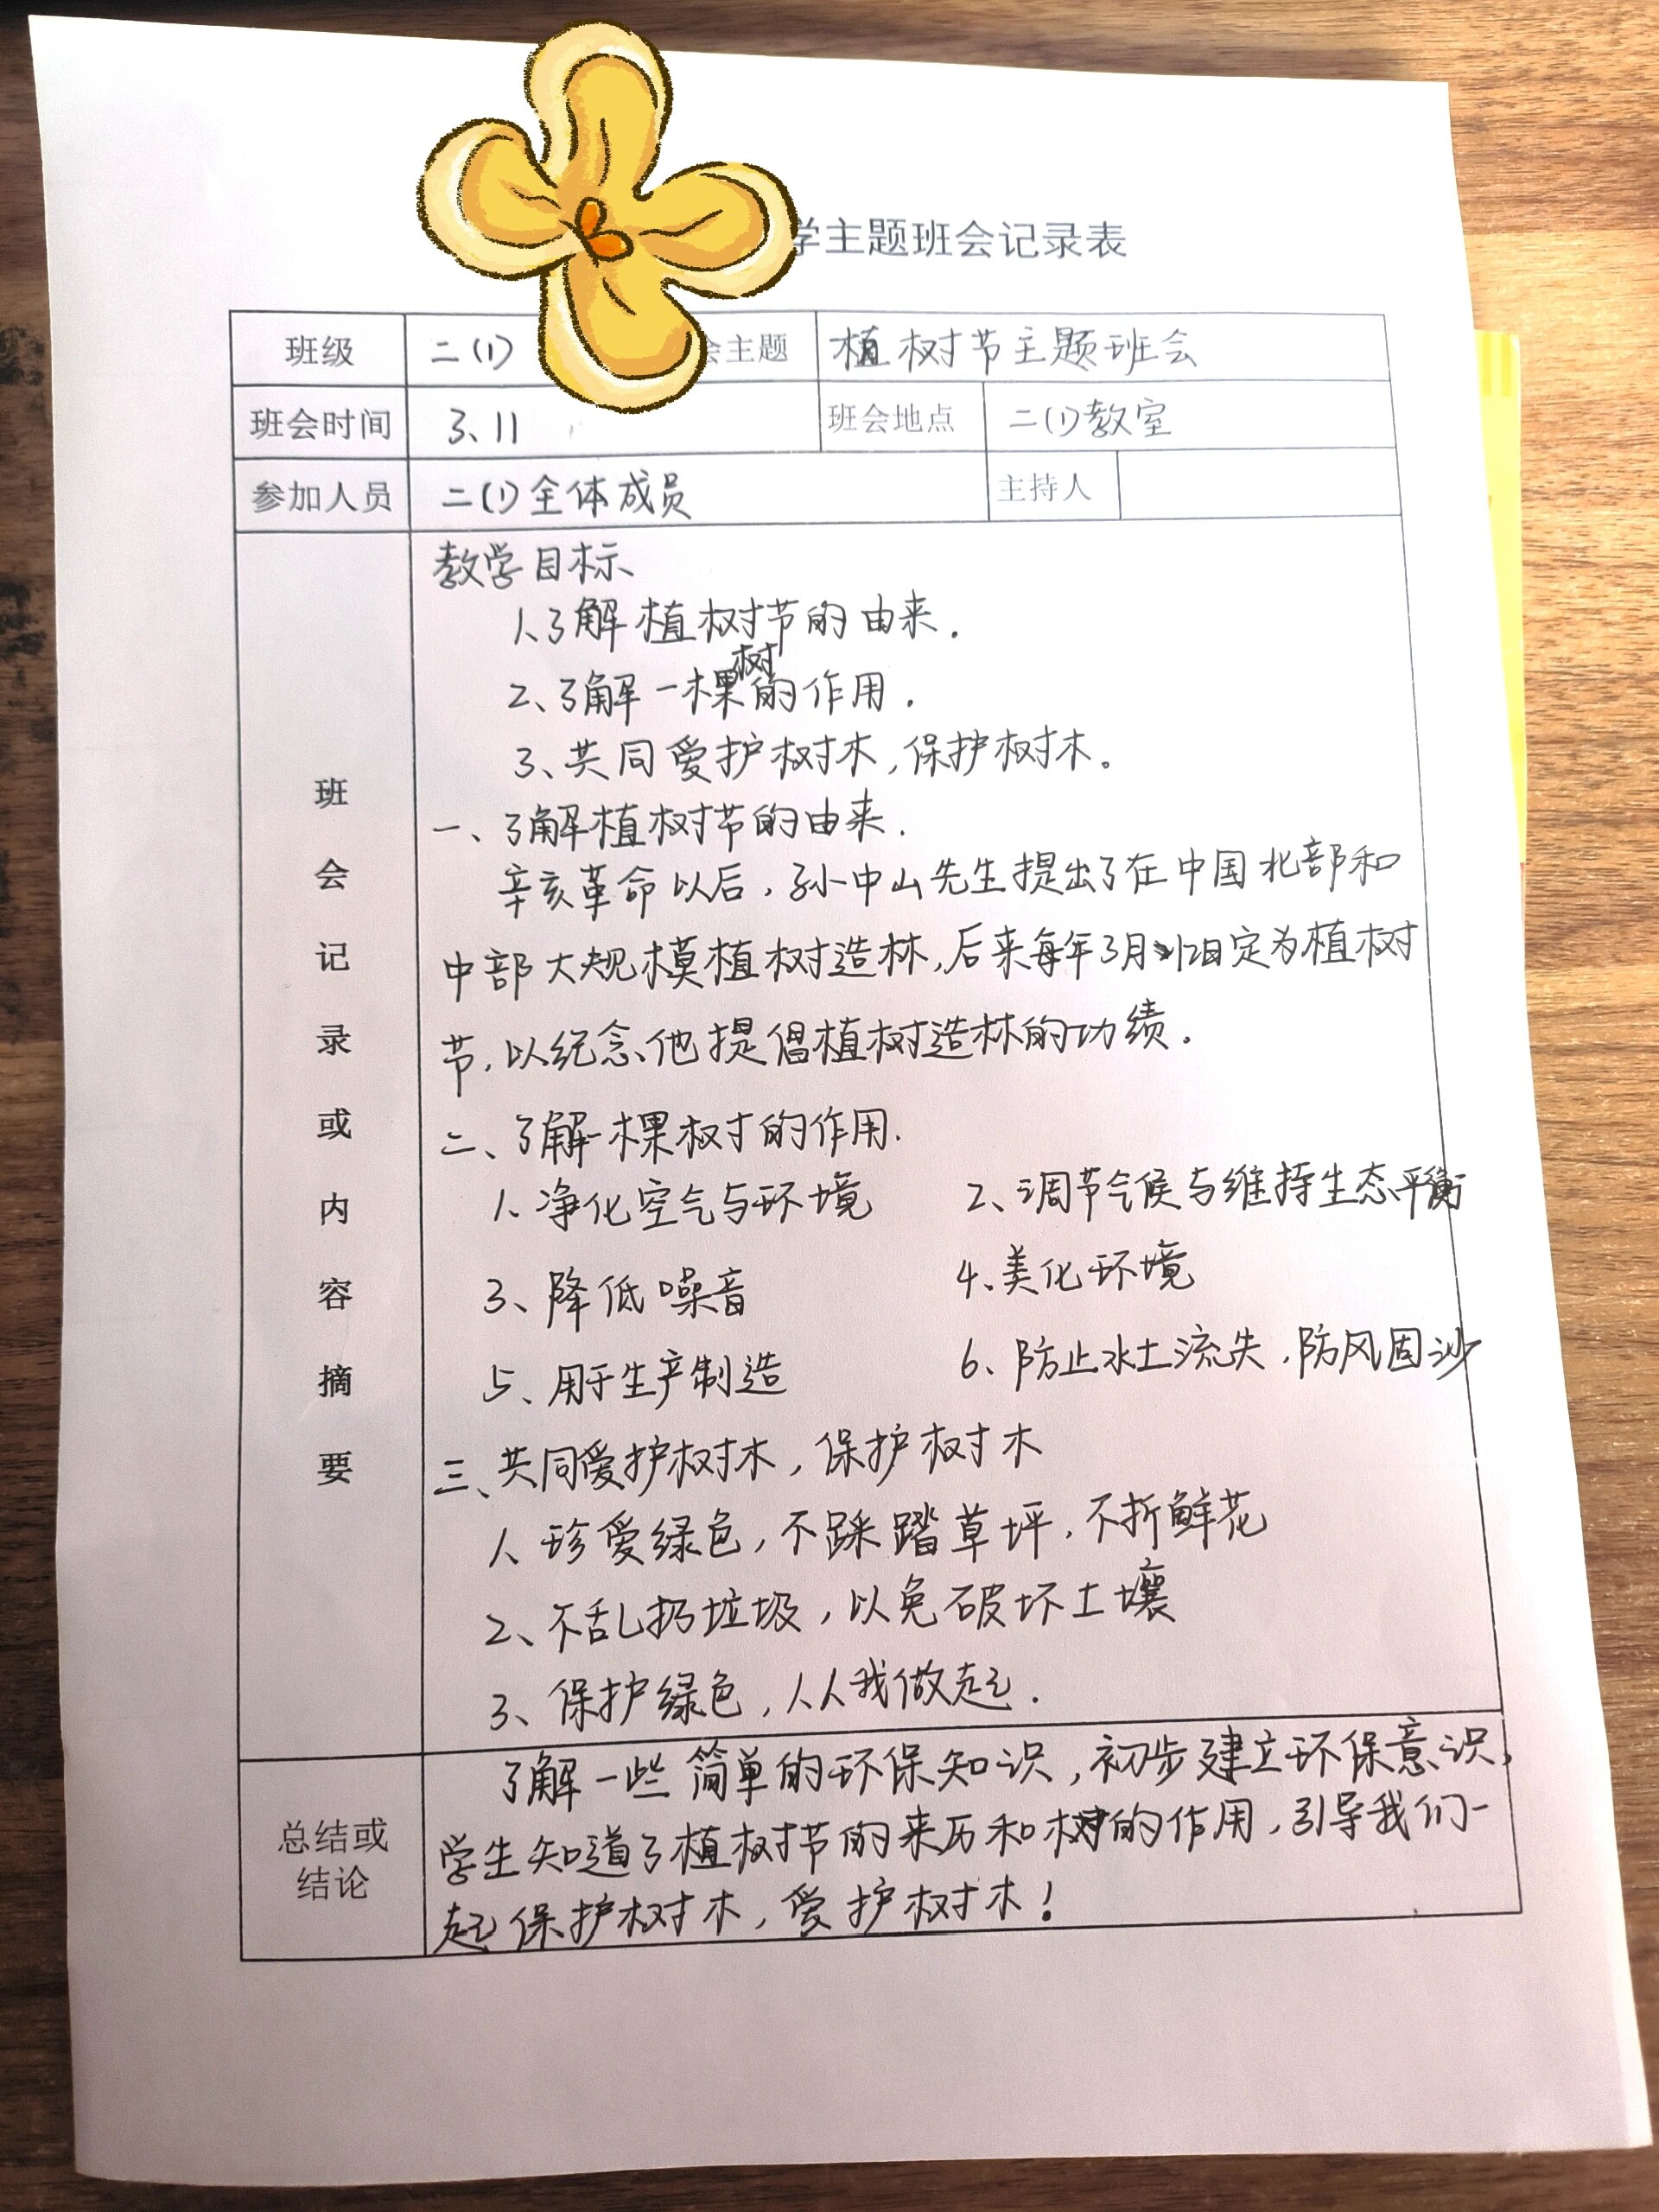 学主题班会记录表
班级 二(1) 会主题 植树节主题班会
班会时间 3、11 班会地点 二(1)教室
参加人员 二(1)全体成员 主持人
班会记录或内容摘要
教学目标
1、了解植树节的由来.
2、了解一棵树的作用.
3、共同爱护树木,保护树木。
一、了解植树节的由来.
辛亥革命以后,孙中山先生提出了在中国北部和
中部大规模植树造林,后来每年3月12日定为植树
节,以纪念他提倡植树造林的功绩.
二、了解一棵树的作用.
1、净化空气与环境 2、调节气候与维持生态平衡
3、降低噪音 4、美化环境
5、用于生产制造 6、防止水土流失,防风固沙
三、共同爱护树木,保护树木
1、珍爱绿色,不踩踏草坪,不折鲜花
2、不乱扔垃圾,以免破坏土壤
3、保护绿色,人人我做起.
总结或
结论
了解一些简单的环保知识,初步建立环保意识,
学生知道了植树节的来历和树的作用,引导我们一
起保护树木,爱护树木!